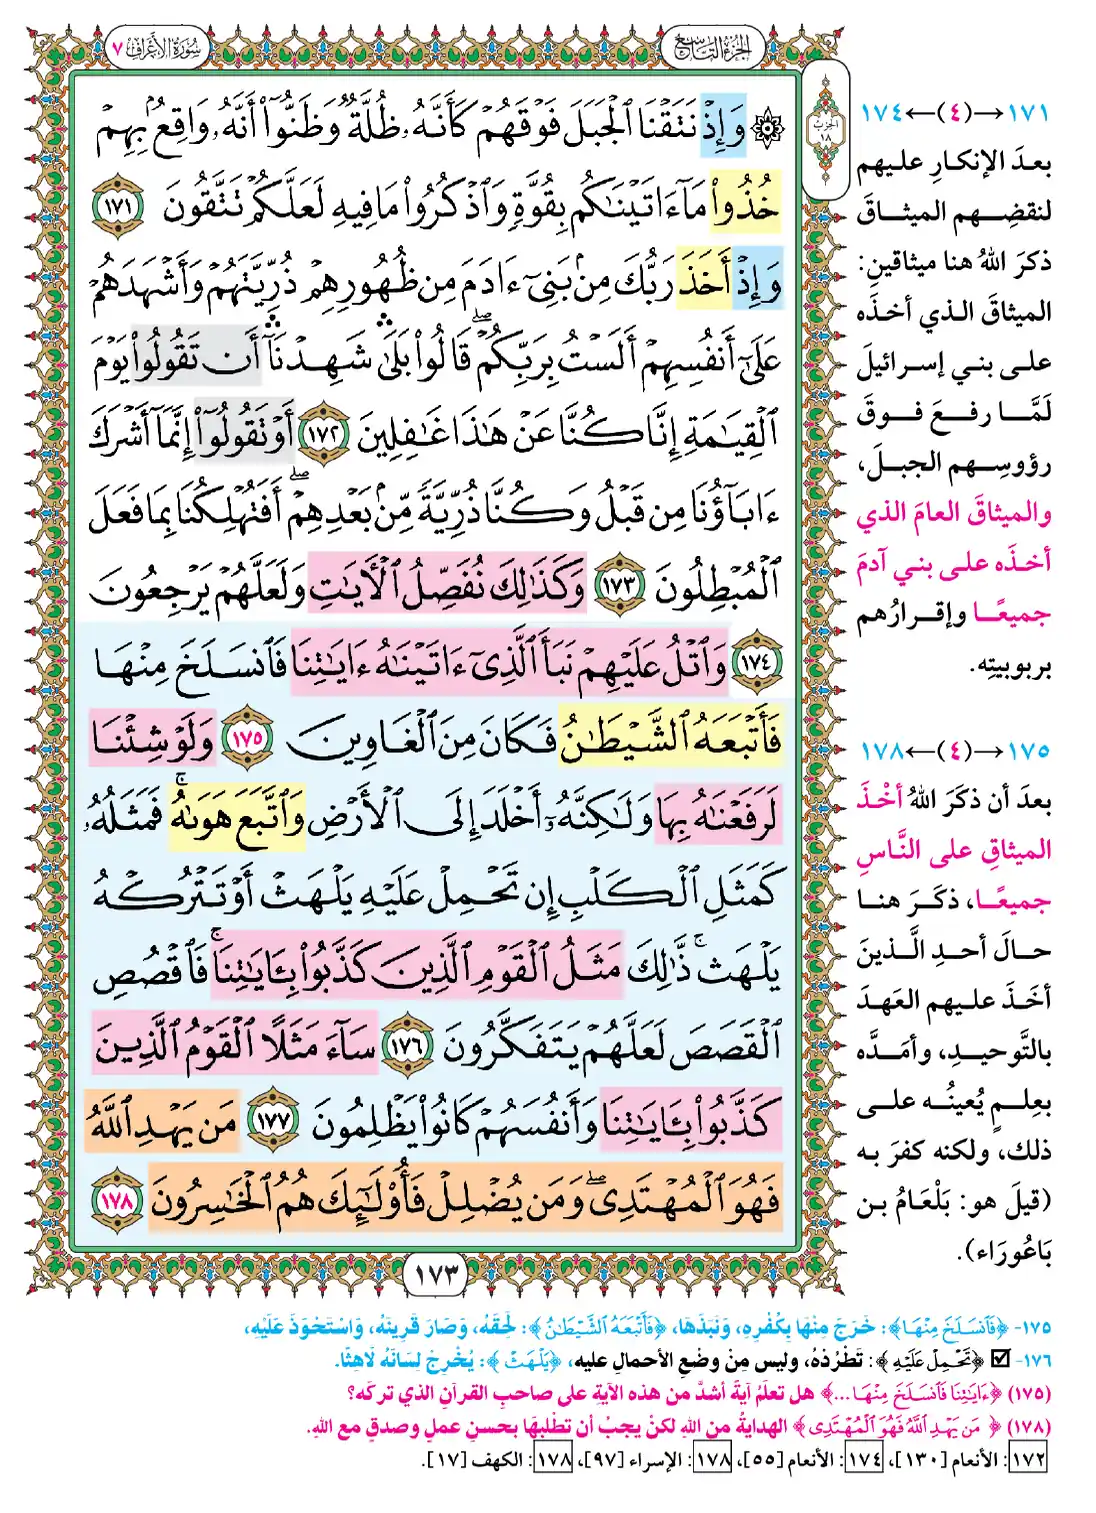 الجزء التاسع
سورة الأعراف ٧
الحزب
١٨
۞ وَإِذْ نَتَقْنَا ٱلْجَبَلَ فَوْقَهُمْ كَأَنَّهُۥ ظُلَّةٌ وَظَنُّوٓا۟ أَنَّهُۥ وَاقِعٌۢ بِهِمْ
خُذُوا۟ مَآ ءَاتَيْنَـٰكُم بِقُوَّةٍ وَٱذْكُرُوا۟ مَا فِيهِ لَعَلَّكُمْ تَتَّقُونَ ١٧١
وَإِذْ أَخَذَ رَبُّكَ مِنۢ بَنِىٓ ءَادَمَ مِن ظُهُورِهِمْ ذُرِّيَّتَهُمْ وَأَشْهَدَهُمْ
عَلَىٰٓ أَنفُسِهِمْ أَلَسْتُ بِرَبِّكُمْ ۖ قَالُوا۟ بَلَىٰ ۛ شَهِدْنَآ ۛ أَن تَقُولُوا۟ يَوْمَ
ٱلْقِيَـٰمَةِ إِنَّا كُنَّا عَنْ هَـٰذَا غَـٰفِلِينَ ١٧٢ أَوْ تَقُولُوٓا۟ إِنَّمَآ أَشْرَكَ
ءَابَآؤُنَا مِن قَبْلُ وَكُنَّا ذُرِّيَّةً مِّنۢ بَعْدِهِمْ ۖ أَفَتُهْلِكُنَا بِمَا فَعَلَ
ٱلْمُبْطِلُونَ ١٧٣ وَكَذَٰلِكَ نُفَصِّلُ ٱلْـَٔايَـٰتِ وَلَعَلَّهُمْ يَرْجِعُونَ
١٧٤ وَٱتْلُ عَلَيْهِمْ نَبَأَ ٱلَّذِىٓ ءَاتَيْنَـٰهُ ءَايَـٰتِنَا فَٱنسَلَخَ مِنْهَا
فَأَتْبَعَهُ ٱلشَّيْطَـٰنُ فَكَانَ مِنَ ٱلْغَاوِينَ ١٧٥ وَلَوْ شِئْنَا
لَرَفَعْنَـٰهُ بِهَا وَلَـٰكِنَّهُۥٓ أَخْلَدَ إِلَى ٱلْأَرْضِ وَٱتَّبَعَ هَوَىٰهُ ۚ فَمَثَلُهُۥ
كَمَثَلِ ٱلْكَلْبِ إِن تَحْمِلْ عَلَيْهِ يَلْهَثْ أَوْ تَتْرُكْهُ
يَلْهَث ۚ ذَّٰلِكَ مَثَلُ ٱلْقَوْمِ ٱلَّذِينَ كَذَّبُوا۟ بِـَٔايَـٰتِنَا ۚ فَٱقْصُصِ
ٱلْقَصَصَ لَعَلَّهُمْ يَتَفَكَّرُونَ ١٧٦ سَآءَ مَثَلًا ٱلْقَوْمُ ٱلَّذِينَ
كَذَّبُوا۟ بِـَٔايَـٰتِنَا وَأَنفُسَهُمْ كَانُوا۟ يَظْلِمُونَ ١٧٧ مَن يَهْدِ ٱللَّهُ
فَهُوَ ٱلْمُهْتَدِى ۖ وَمَن يُضْلِلْ فَأُو۟لَـٰٓئِكَ هُمُ ٱلْخَـٰسِرُونَ ١٧٨
١٧٣
١٧١→(٤)←١٧٤
بعدَ الإنكارِ عليهم
لنقضِهم الميثاقَ
ذكرَ اللهُ هنا ميثاقينِ:
الميثاقَ الذي أخذَه
على بني إسرائيلَ
لَمَّا رفعَ فوقَ
رؤوسِهم الجبلَ،
والميثاقَ العامَ الذي
أخذَه على بني آدمَ
جميعًا وإقرارُهم
بربوبيتِه.
١٧٥→(٤)←١٧٨
بعدَ أن ذكَرَ اللهُ أخْذَ
الميثاقِ على النَّاسِ
جميعًا، ذكَرَ هنا
حالَ أحدِ الَّذينَ
أخَذَ عليهم العَهدَ
بالتَّوحيدِ، وأمَدَّه
بعِلمٍ يُعينُه على
ذلك، ولكنه كفرَ به
(قيلَ هو: بَلْعَامُ بن
بَاعُورَاء).
١٧٥- ﴿فَٱنسَلَخَ مِنْهَا﴾: خَرَجَ مِنْهَا بِكُفْرِهِ، وَنَبَذَهَا، ﴿فَأَتْبَعَهُ ٱلشَّيْطَـٰنُ﴾: لَحِقَهُ، وَصَارَ قَرِينَهُ، وَاسْتَحْوَذَ عَلَيْهِ،
١٧٦- ☑ ﴿تَحْمِلْ عَلَيْهِ﴾: تَطْرُدْهُ، وليس مِنْ وضْعِ الأحمالِ عليه، ﴿يَلْهَثْ﴾: يُخْرِجْ لِسَانَهُ لَاهِثًا.
(١٧٥) ﴿ءَايَـٰتِنَا فَٱنسَلَخَ مِنْهَا...﴾ هل تعلَمُ آيةً أشدَّ من هذه الآيةِ على صاحبِ القرآنِ الذي تركَه؟
(١٧٨) ﴿ مَن يَهْدِ ٱللَّهُ فَهُوَ ٱلْمُهْتَدِى﴾ الهدايةُ من اللهِ لكنْ يجبُ أن تطلبَهَا بحسنِ عملٍ وصدقٍ مع اللهِ.
١٧٢: الأنعام [١٣٠]، ١٧٤: الأنعام [٥٥]، ١٧٨: الإسراء [٩٧]، ١٧٨: الكهف [١٧].